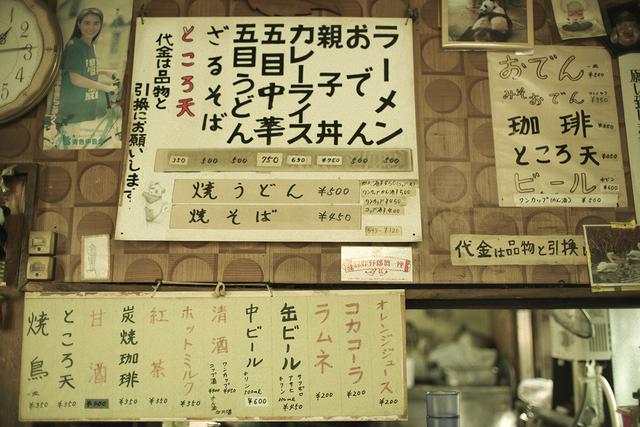 ラーメン
おでん
親子丼
カレーライス
五目中華
五目うどん
ざるそば
ところ天
代金は品物と
引換にお願いします。
350 500 500 750 650 500 500
焼うどん ¥500
焼そば ¥450
おでん
みそおでん ¥350
珈琲
ところ天
ビール
ワンカップ
代金は品物と引換
オレンジジュース ¥200
コカコーラ ¥200
ラムネ ¥200
缶ビール サッポロ アサヒ キリン ¥450
中ビール キリン 500ml ¥600
清酒
ホットミルク ¥350
紅茶 ¥350
炭焼珈琲 ¥350
甘酒
ところ天 ¥350
焼鳥 ¥350